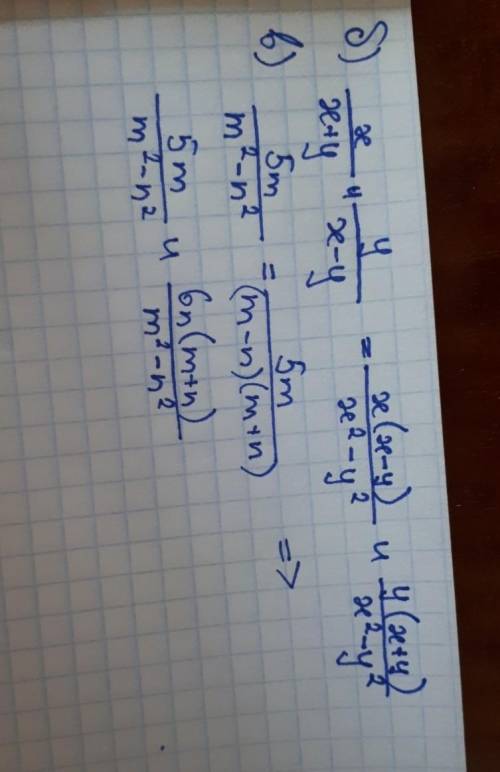 б) x/(x+y) и y/(x-y) = x(x-y)/(x²-y²) и y(x+y)/(x²-y²)
в) 5m/(m²-n²) = 5m/((m-n)(m+n)) =>
5m/(m²-n²) и 6n(m+n)/(m²-n²)